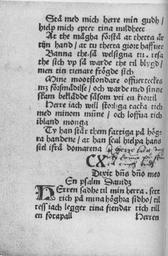 Stå med mich herre min gudh/
hielp mich epter tina mildheet
At the mågha förstå at thetta är
tijn hand/ at tu thetta giort haffuer
Banna the/så welsigna tu. resa
the sich vp så warde the til blygd/
men tin tienare frögde sich
Mine mootstondare offuertecktes
mz försmädilse/ och warde med sinne
skam beklädde såsom vti en kiortil
Herre iach will storliga tacka tich
med minom munne/ och loffua tich
ibland monga
Ty han står them fattiga på högra
handene/ at han skal hielpa hans
siel ifrå domarena
CX
Dixit dn̄s dn̄o meo
En psalm Dauidz
Herren sadhe til min herra. sett
tich på mina höghra sidho/ til
tess iach legger tina fiendar tich till
en fotapall
Herren